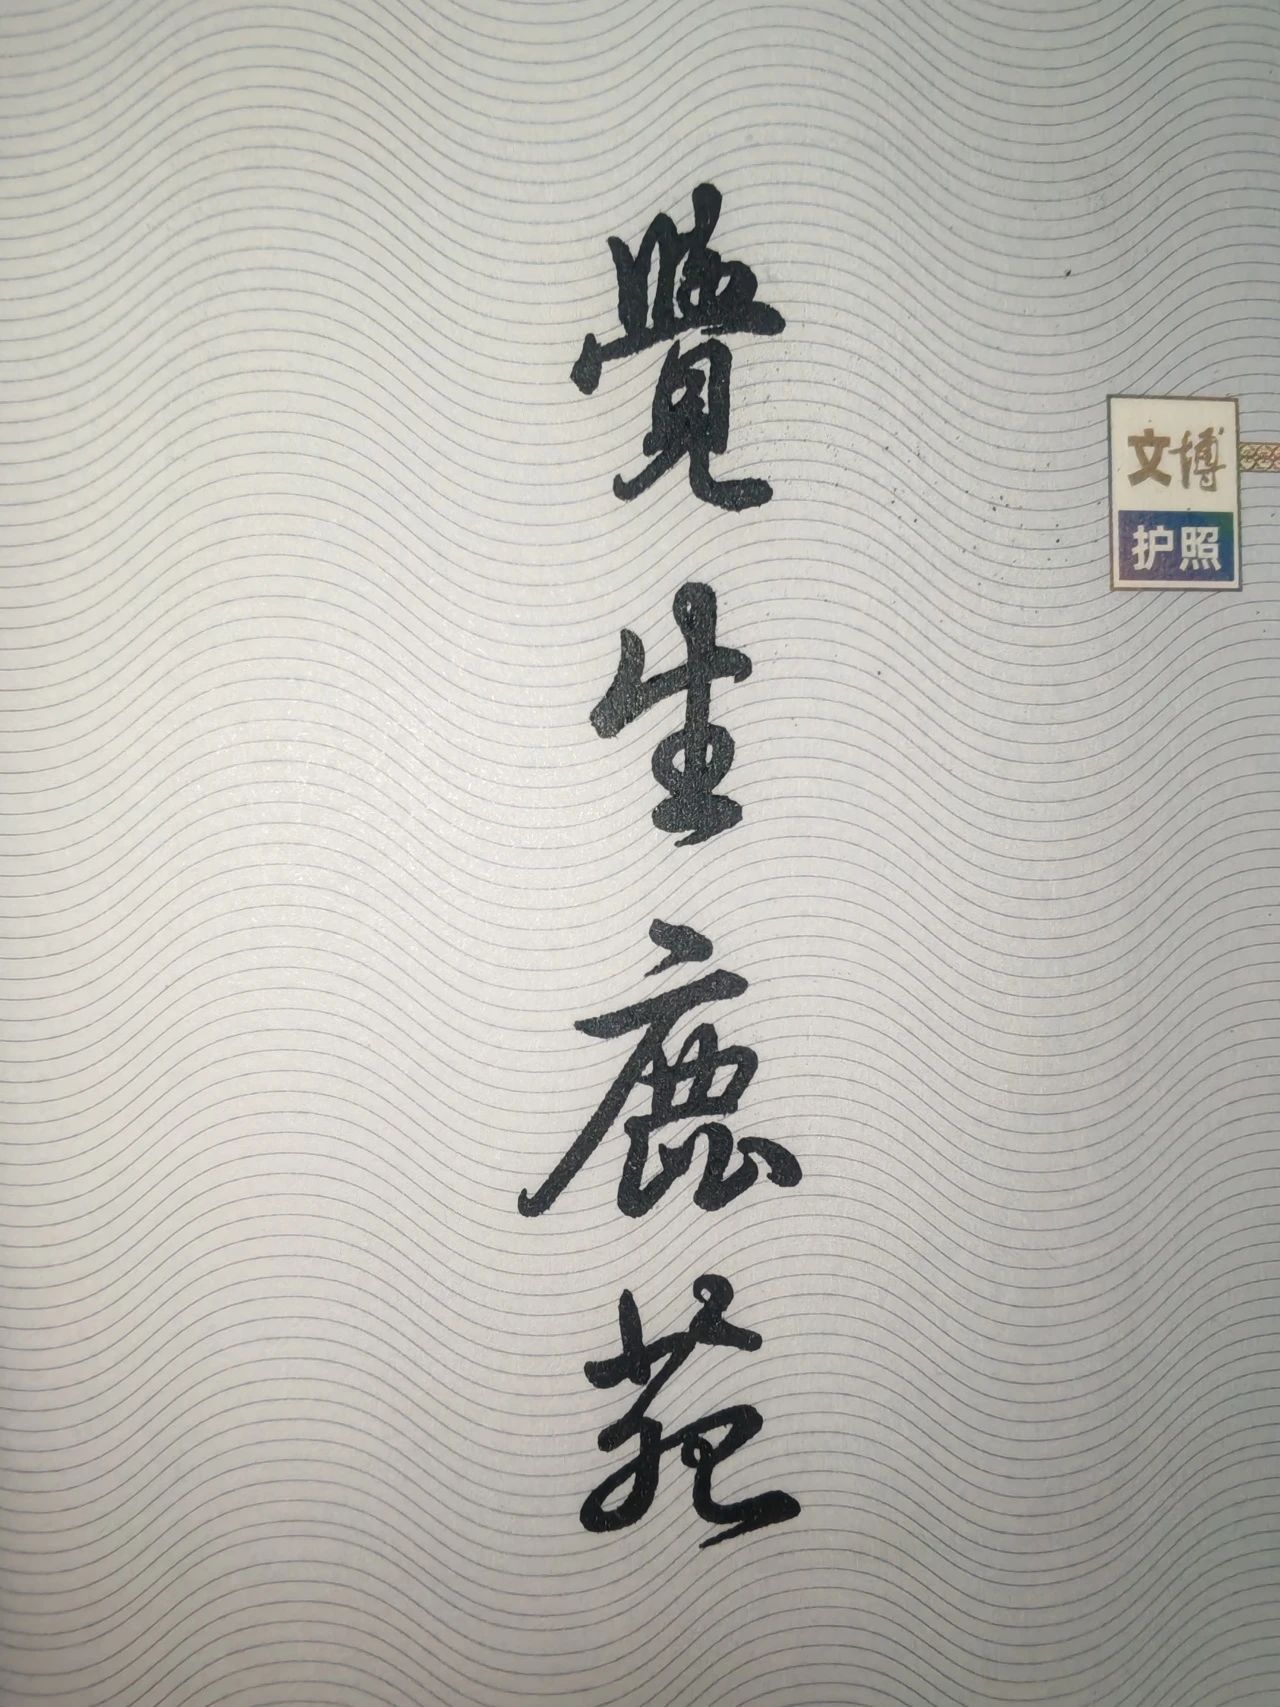 覺生鹿苑
文博
护照